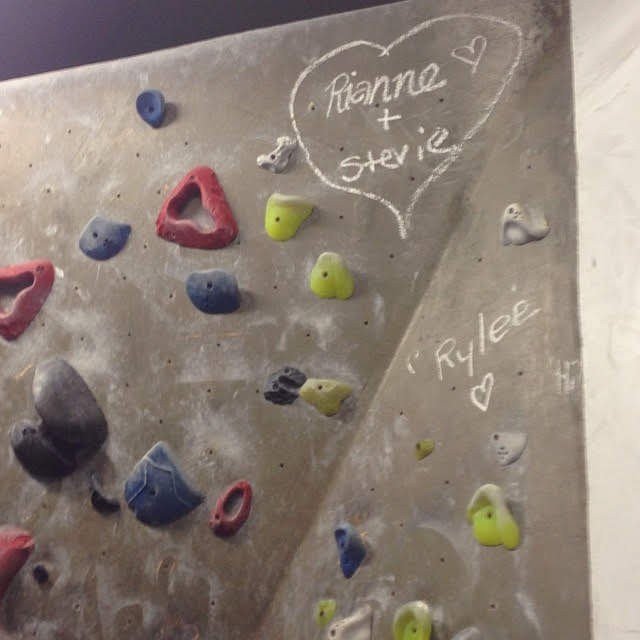 Rianne
+
Stevie
Rylee